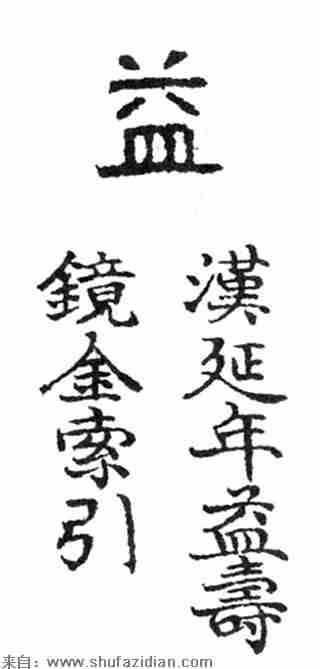 益
漢延年益壽
鏡金索引
来自：www.shufazidian.com